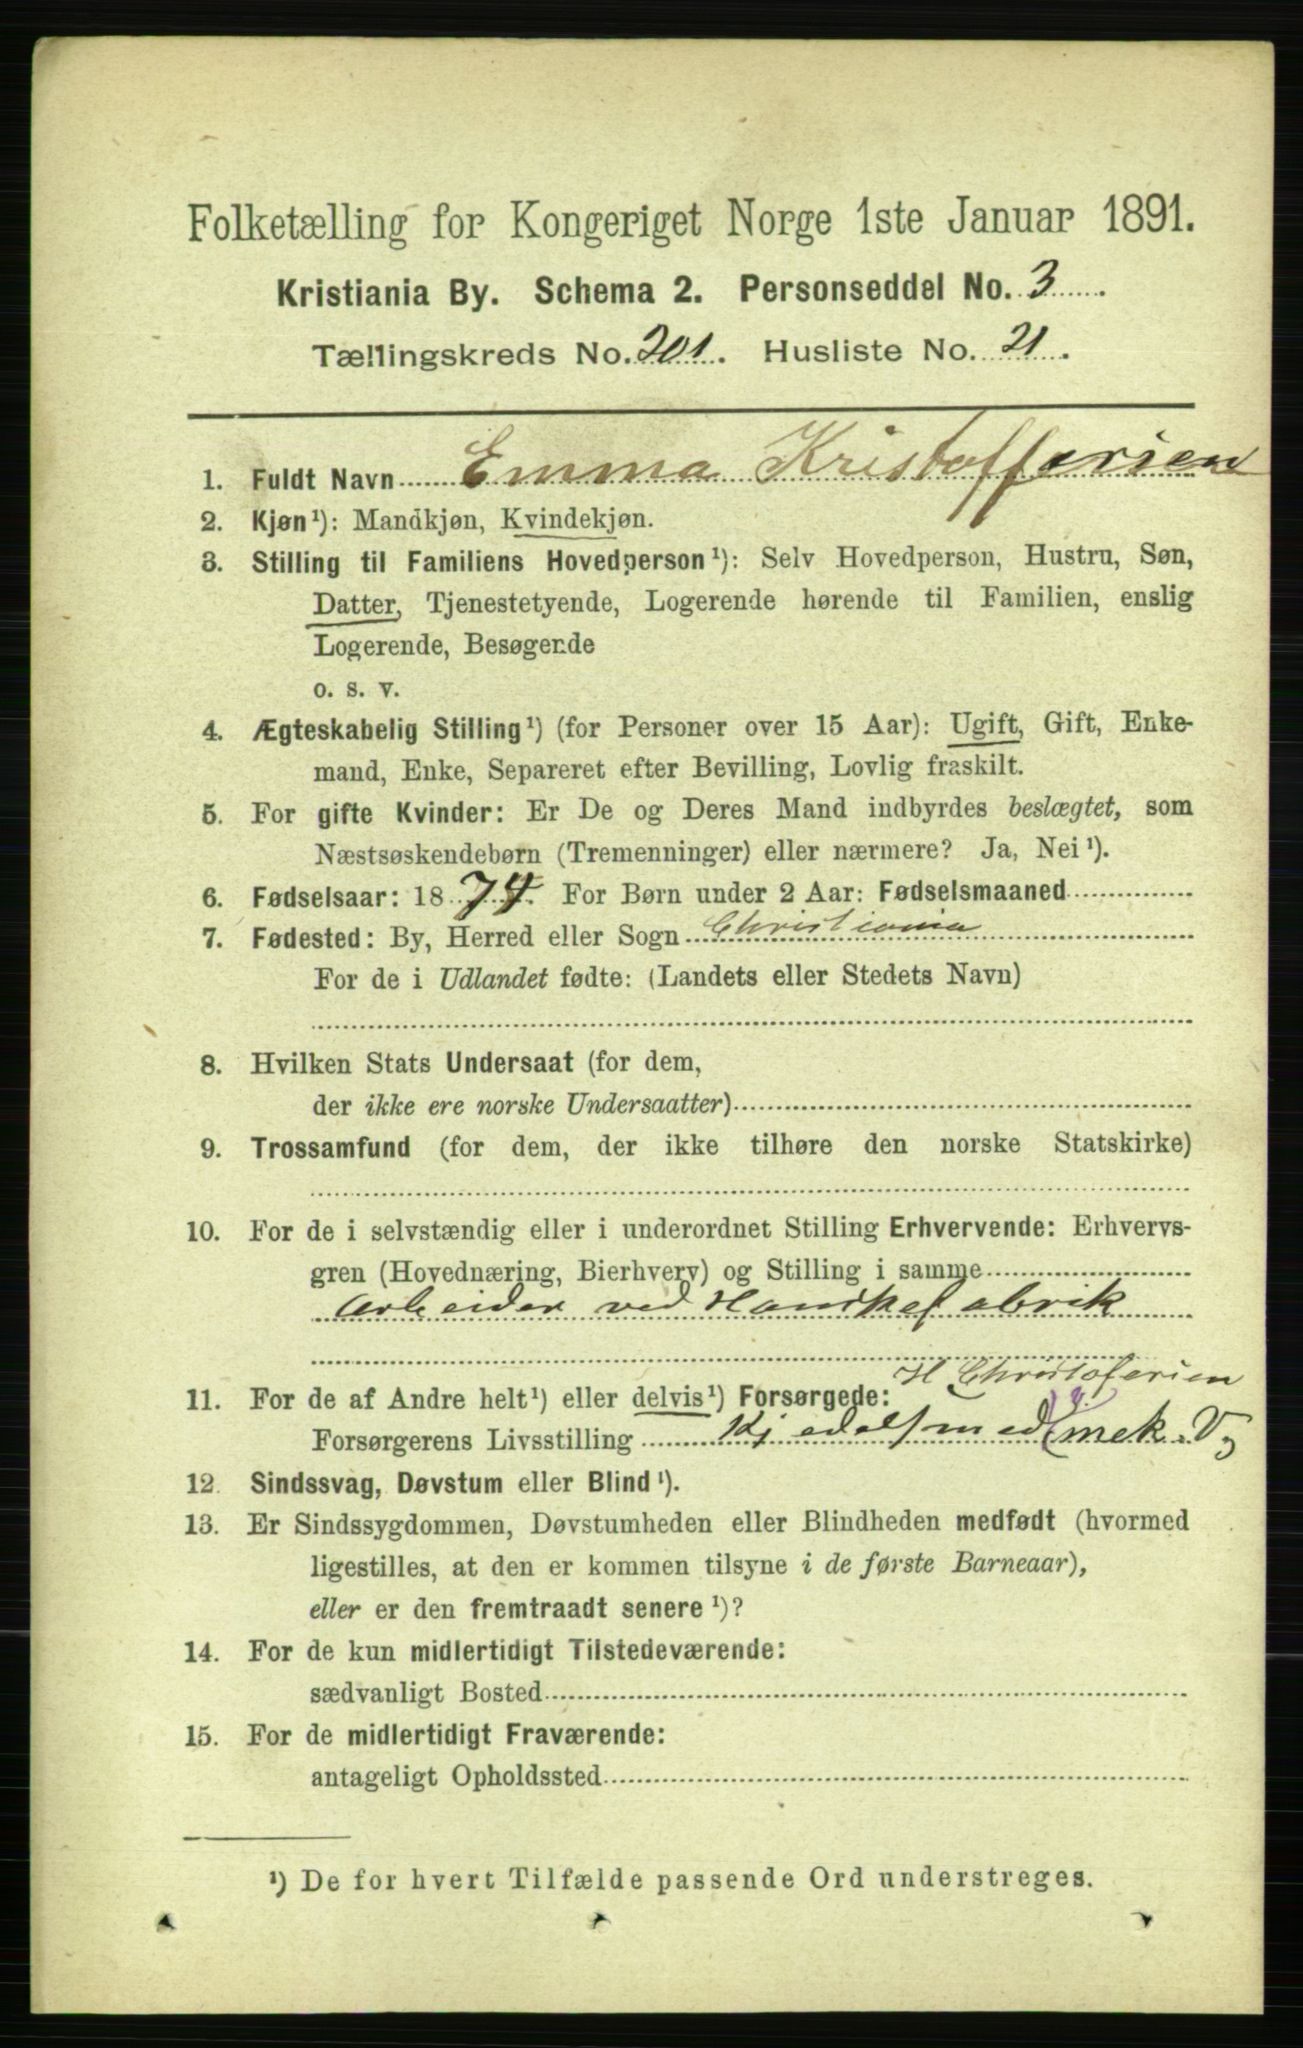 Folketælling for Kongeriget Norge 1ste Januar 1891.
Kristiania By. Schema 2. Personseddel No. 3
Tællingskreds No. 201. Husliste No. 21.
1. Fuldt Navn Emma Kristoffersen
2. Kjøn¹): Mandkjøn, Kvindekjøn.
3. Stilling til Familiens Hovedperson¹): Selv Hovedperson, Hustru, Søn,
Datter, Tjenestetyende, Logerende hørende til Familien, enslig
Logerende, Besøgende
o. s. v.
4. Ægteskabelig Stilling¹) (for Personer over 15 Aar): Ugift, Gift, Enke-
mand, Enke, Separeret efter Bevilling, Lovlig fraskilt.
5. For gifte Kvinder: Er De og Deres Mand indbyrdes beslægtet, som
Næstsøskendebørn (Tremenninger) eller nærmere? Ja, Nei¹).
6. Fødselsaar: 1874. For Børn under 2 Aar: Fødselsmaaned
7. Fødested: By, Herred eller Sogn Christiania
For de i Udlandet fødte: (Landets eller Stedets Navn)
8. Hvilken Stats Undersaat (for dem,
der ikke ere norske Undersaatter)
9. Trossamfund (for dem, der ikke tilhøre den norske Statskirke)
10. For de i selvstændig eller i underordnet Stilling Erhvervende: Erhvervs-
gren (Hovednæring, Bierhverv) og Stilling i samme
Arbeider ved Hanskefabrik
H Christofersen
11. For de af Andre helt¹) eller delvis¹) Forsørgede:
Forsørgerens Livsstilling Kjedelsmed mek. V
12. Sindssvag, Døvstum eller Blind¹).
13. Er Sindssygdommen, Døvstumheden eller Blindheden medfødt (hvormed
ligestilles, at den er kommen tilsyne i de første Barneaar),
eller er den fremtraadt senere¹)?
14. For de kun midlertidigt Tilstedeværende:
sædvanligt Bosted
15. For de midlertidigt Fraværende:
antageligt Opholdssted
¹) De for hvert Tilfælde passende Ord understreges.